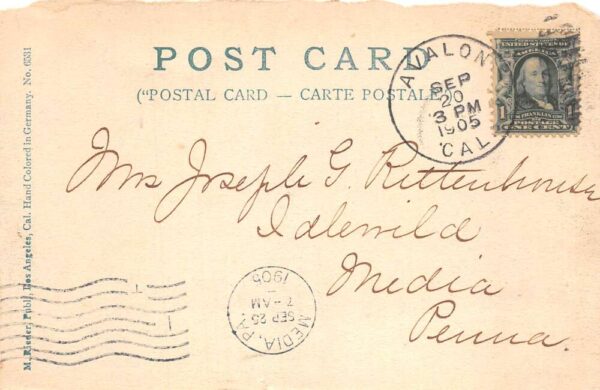 POST CARD
("POSTAL CARD — CARTE POSTALE")
M. Rieder, Publ., Los Angeles, Cal. Hand Colored in Germany. No. 6531
AVALON
SEP
20
3 PM
1905
CAL
UNITED STATES OF
AMERICA
FRANKLIN
POSTAGE
1
ONE CENT
Mrs Joseph G. Rittenhouse
Idlewild
Media
Penna.
MEDIA, PA.
SEP 25
7-AM
1905